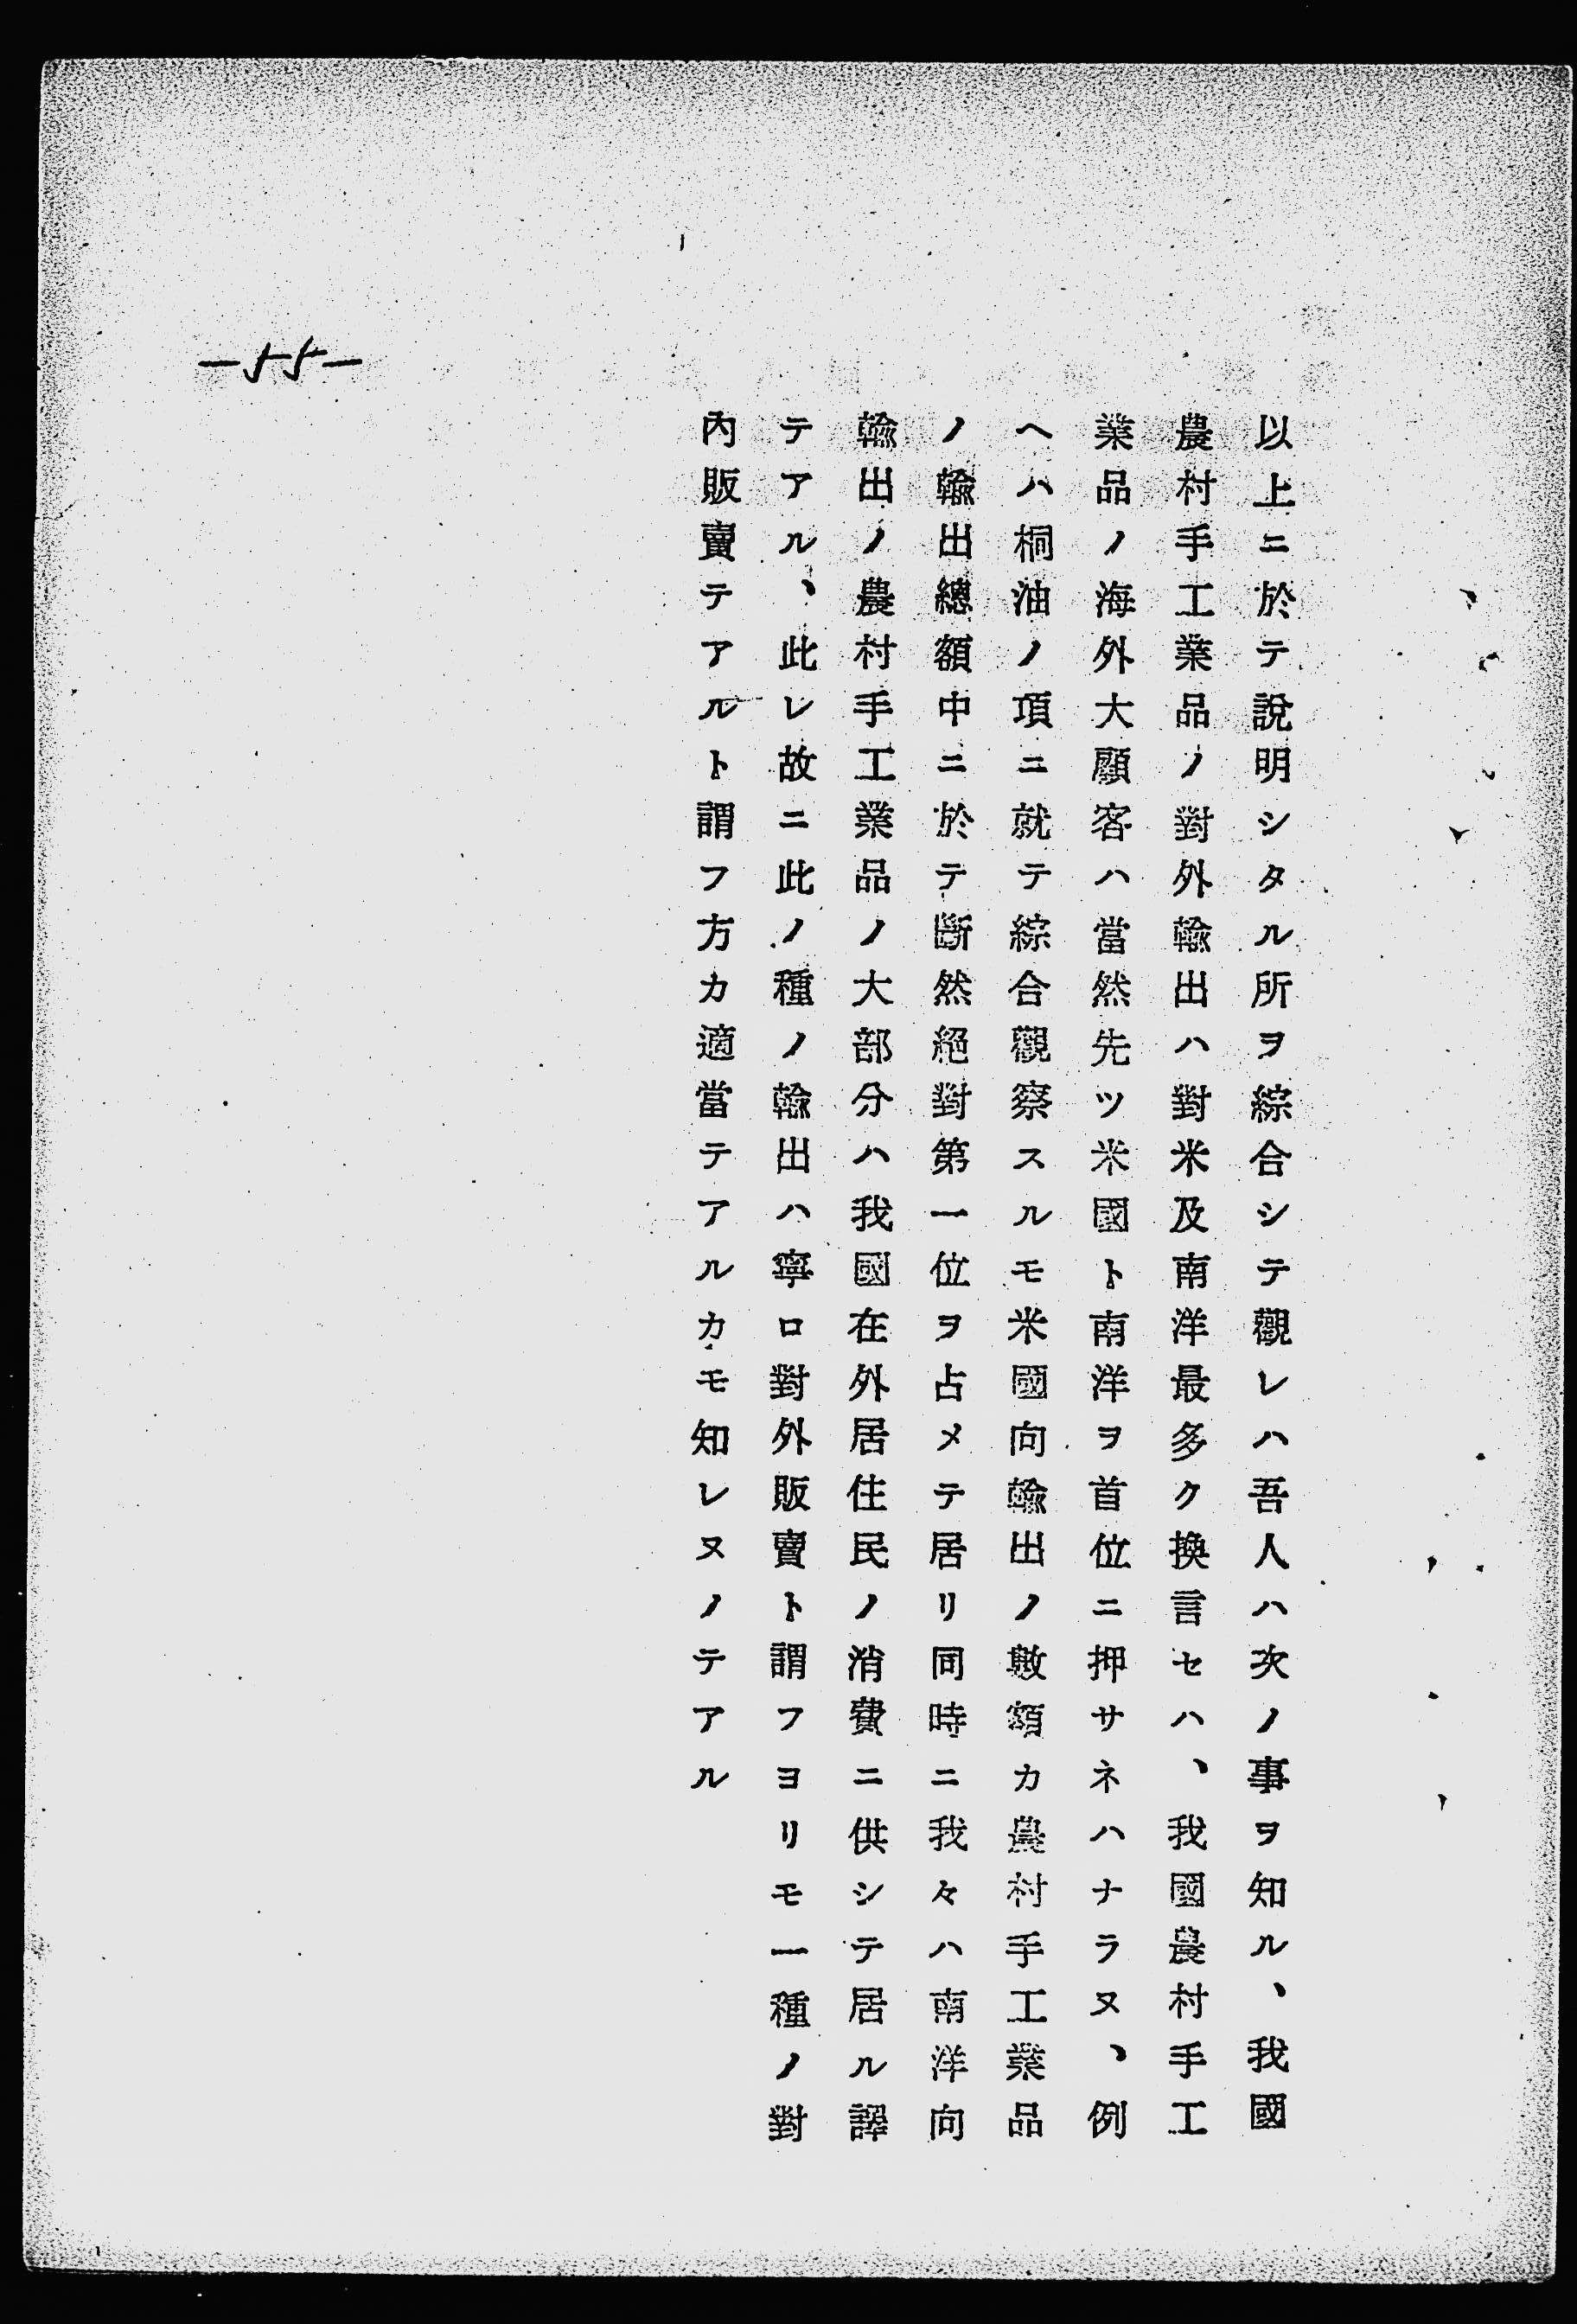 以上ニ於テ說明シタル所ヲ綜合シテ觀レハ吾人ハ次ノ事ヲ知ル、我國
農村手工業品ノ對外輸出ハ對米及南洋最多ク換言セハ、我國農村手工
業品ノ海外大顧客ハ當然先ツ米國ト南洋ヲ首位ニ押サネハナラヌ、例
ヘハ桐油ノ項ニ就テ綜合觀察スルモ米國向輸出ノ數額カ農村手工業品
ノ輸出總額中ニ於テ斷然絕對第一位ヲ占メテ居リ同時ニ我々ハ南洋向
輸出ノ農村手工業品ノ大部分ハ我國在外居住民ノ消費ニ供シテ居ル譯
テアル、此レ故ニ此ノ種ノ輸出ハ寧ロ對外販賣ト謂フヨリモ一種ノ對
內販賣テアルト謂フ方カ適當テアルカモ知レヌノテアル
—55—